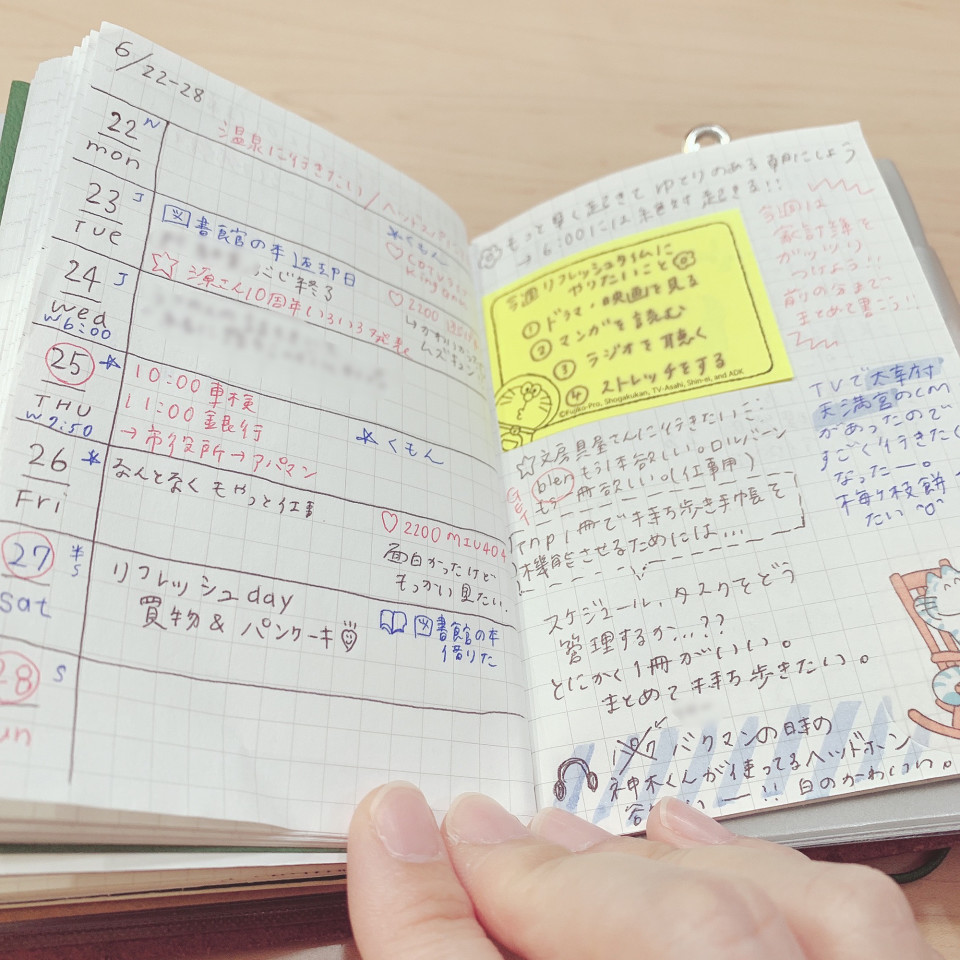 6/22-28
温泉に行きたい/
22 N
mon
23 J
TUE
図書館の本返却日
*くもん
24 J
Wed
W6:00
じ終る
☆源さん10周年いろいろ発表
♡2200
25 *
THU
W7:50
10:00 車検
11:00 銀行
→市役所→アパマン
*くもん
26 *
Fri
なんとなくもやっと仕事.
♡2200 MIU404
面白かったけど
もっかい見たい.
27 * S
Sat
リフレッシュday
買物 & パンケーキ
図書館の本
借りた
28 S
un
もっと早く起きてゆとりのある朝にしよう
→6:00には絶対起きる!!
今週リフレッシュタイムに
やりたいこと
①ドラマ・映画を見る
②マンガを読む
③ラジオを聴く
④ストレッチをする
©Fujiko-Pro, Shogakukan, TV-Asahi, Shin-ei, and ADK
今週は
家計簿を
ガッツリ
つけよう!!
前の分まで
まとめて書こう!!
☆文房具屋さんに行きたいご.
blen もう1本欲しい。ロルバーン
もう一冊欲しい。(仕事用)
TVで太宰府
天満宮のCM
があったので
すごく行きたく
なったー。
梅ヶ枝餅
たい
1冊で持ち歩き手帳を
機能させるためには…
スケジュール、タスクをどう
管理するか…??
とにかく1冊がいい。
まとめて持ち歩きたい。
バクマンの時の
神木くんが使ってるヘッドホン
ー!! 白のかわいい。